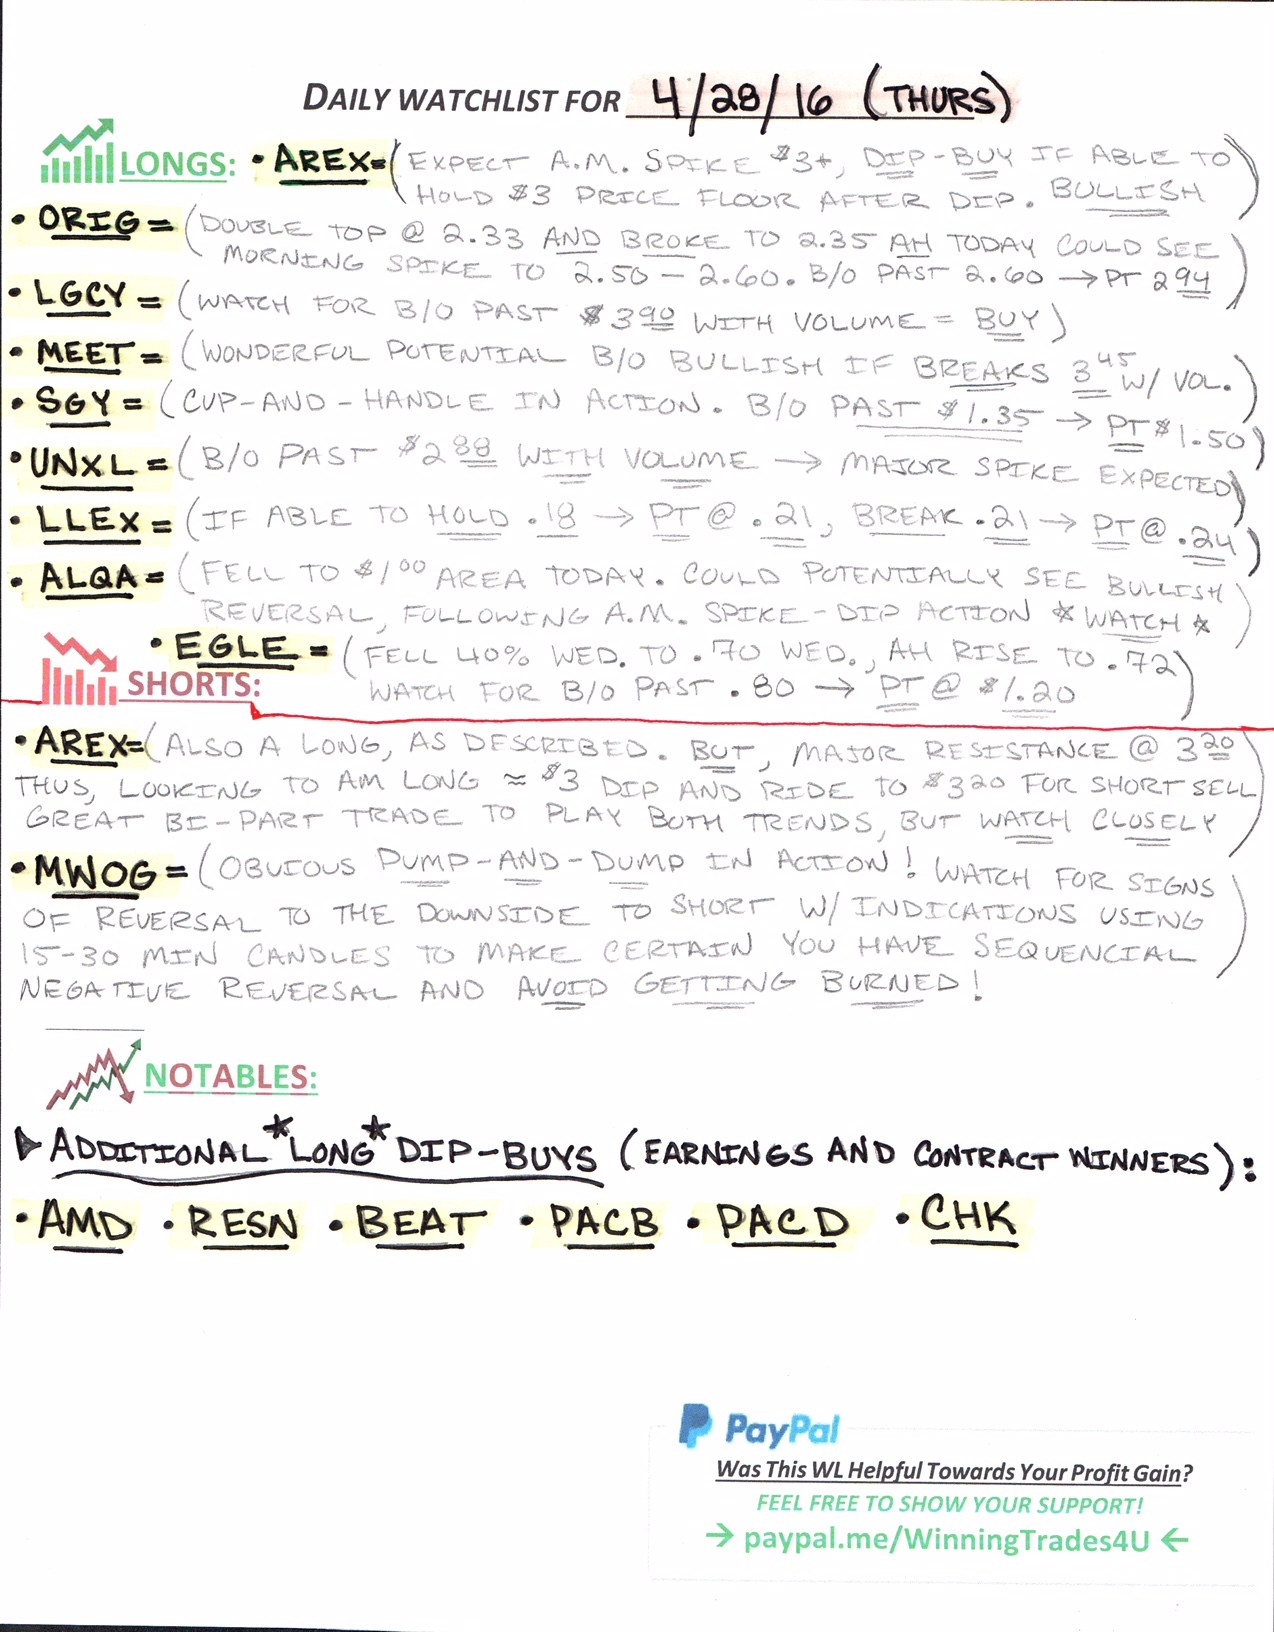 DAILY WATCHLIST FOR 4/28/16 (THURS)
LONGS: • AREX= (EXPECT A.M. SPIKE $3+, DIP-BUY IF ABLE TO
HOLD $3 PRICE FLOOR AFTER DIP. BULLISH)
• ORIG = (DOUBLE TOP @ 2.33 AND BROKE TO 2.35 AH TODAY COULD SEE
MORNING SPIKE TO 2.50 - 2.60. B/O PAST 2.60 → PT 2 94)
• LGCY = (WATCH FOR B/O PAST $3 90 WITH VOLUME = BUY)
• MEET = (WONDERFUL POTENTIAL B/O BULLISH IF BREAKS 3 45 W/ VOL.)
• SGY = (CUP-AND-HANDLE IN ACTION. B/O PAST $1.35 → PT $1.50)
• UNXL = (B/O PAST $2 88 WITH VOLUME → MAJOR SPIKE EXPECTED)
• LLEX = (IF ABLE TO HOLD .18 → PT @ .21, BREAK .21 → PT @ .24)
• ALQA = (FELL TO $1 00 AREA TODAY. COULD POTENTIALLY SEE BULLISH
REVERSAL, FOLLOWING A.M. SPIKE-DIP ACTION * WATCH *)
• EGLE = (FELL 40% WED. TO .70 WED., AH RISE TO .72
SHORTS: WATCH FOR B/O PAST .80 → PT @ $1.20)
• AREX= (ALSO A LONG, AS DESCRIBED. BUT, MAJOR RESISTANCE @ 3 20
THUS, LOOKING TO AM LONG ≈ $3 DIP AND RIDE TO $3 20 FOR SHORT SELL
GREAT BI-PART TRADE TO PLAY BOTH TRENDS, BUT WATCH CLOSELY)
• MWOG = (OBVIOUS DUMP-AND-DUMP IN ACTION! WATCH FOR SIGNS
OF REVERSAL TO THE DOWNSIDE TO SHORT W/ INDICATIONS USING
15-30 MIN CANDLES TO MAKE CERTAIN YOU HAVE SEQUENCIAL
NEGATIVE REVERSAL AND AVOID GETTING BURNED!)
NOTABLES:
ADDITIONAL *LONG* DIP-BUYS (EARNINGS AND CONTRACT WINNERS):
• AMD • RESN • BEAT • PACB • PACD • CHK
PayPal
Was This WL Helpful Towards Your Profit Gain?
FEEL FREE TO SHOW YOUR SUPPORT!
→ paypal.me/WinningTrades4U ←